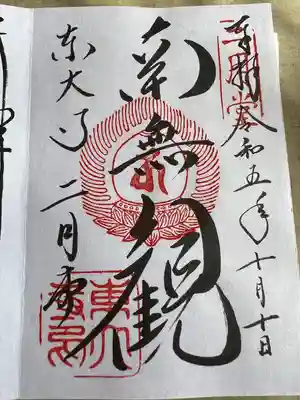 奉拝 令和五年十月十日
南無観
東大寺 二月堂